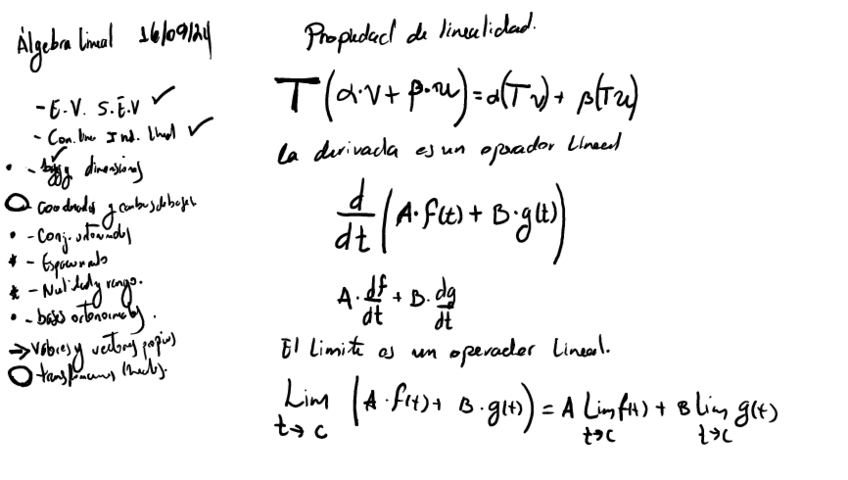 Álgebra lineal 16/09/24
- E.V. S.E.V ✓
- Con. line Ind. lineal ✓
• - y dimensiones
coordenadas y cambios de bases
• - Conj. ortonormales
* - Espacio nulo
* - Nulidad y rango.
• - bases ortonormales.
→ Valores y vectores propios
transformaciones lineales.
Propiedad de linealidad.
T(α·v + β·u) = α(Tv) + β(Tu)
La derivada es un operador lineal
d/dt (A·f(t) + B·g(t))
A·df/dt + B·dg/dt
El limite es un operador lineal.
Lim t→c (A·f(t) + B·g(t)) = A Lim t→c f(t) + B lim t→c g(t)